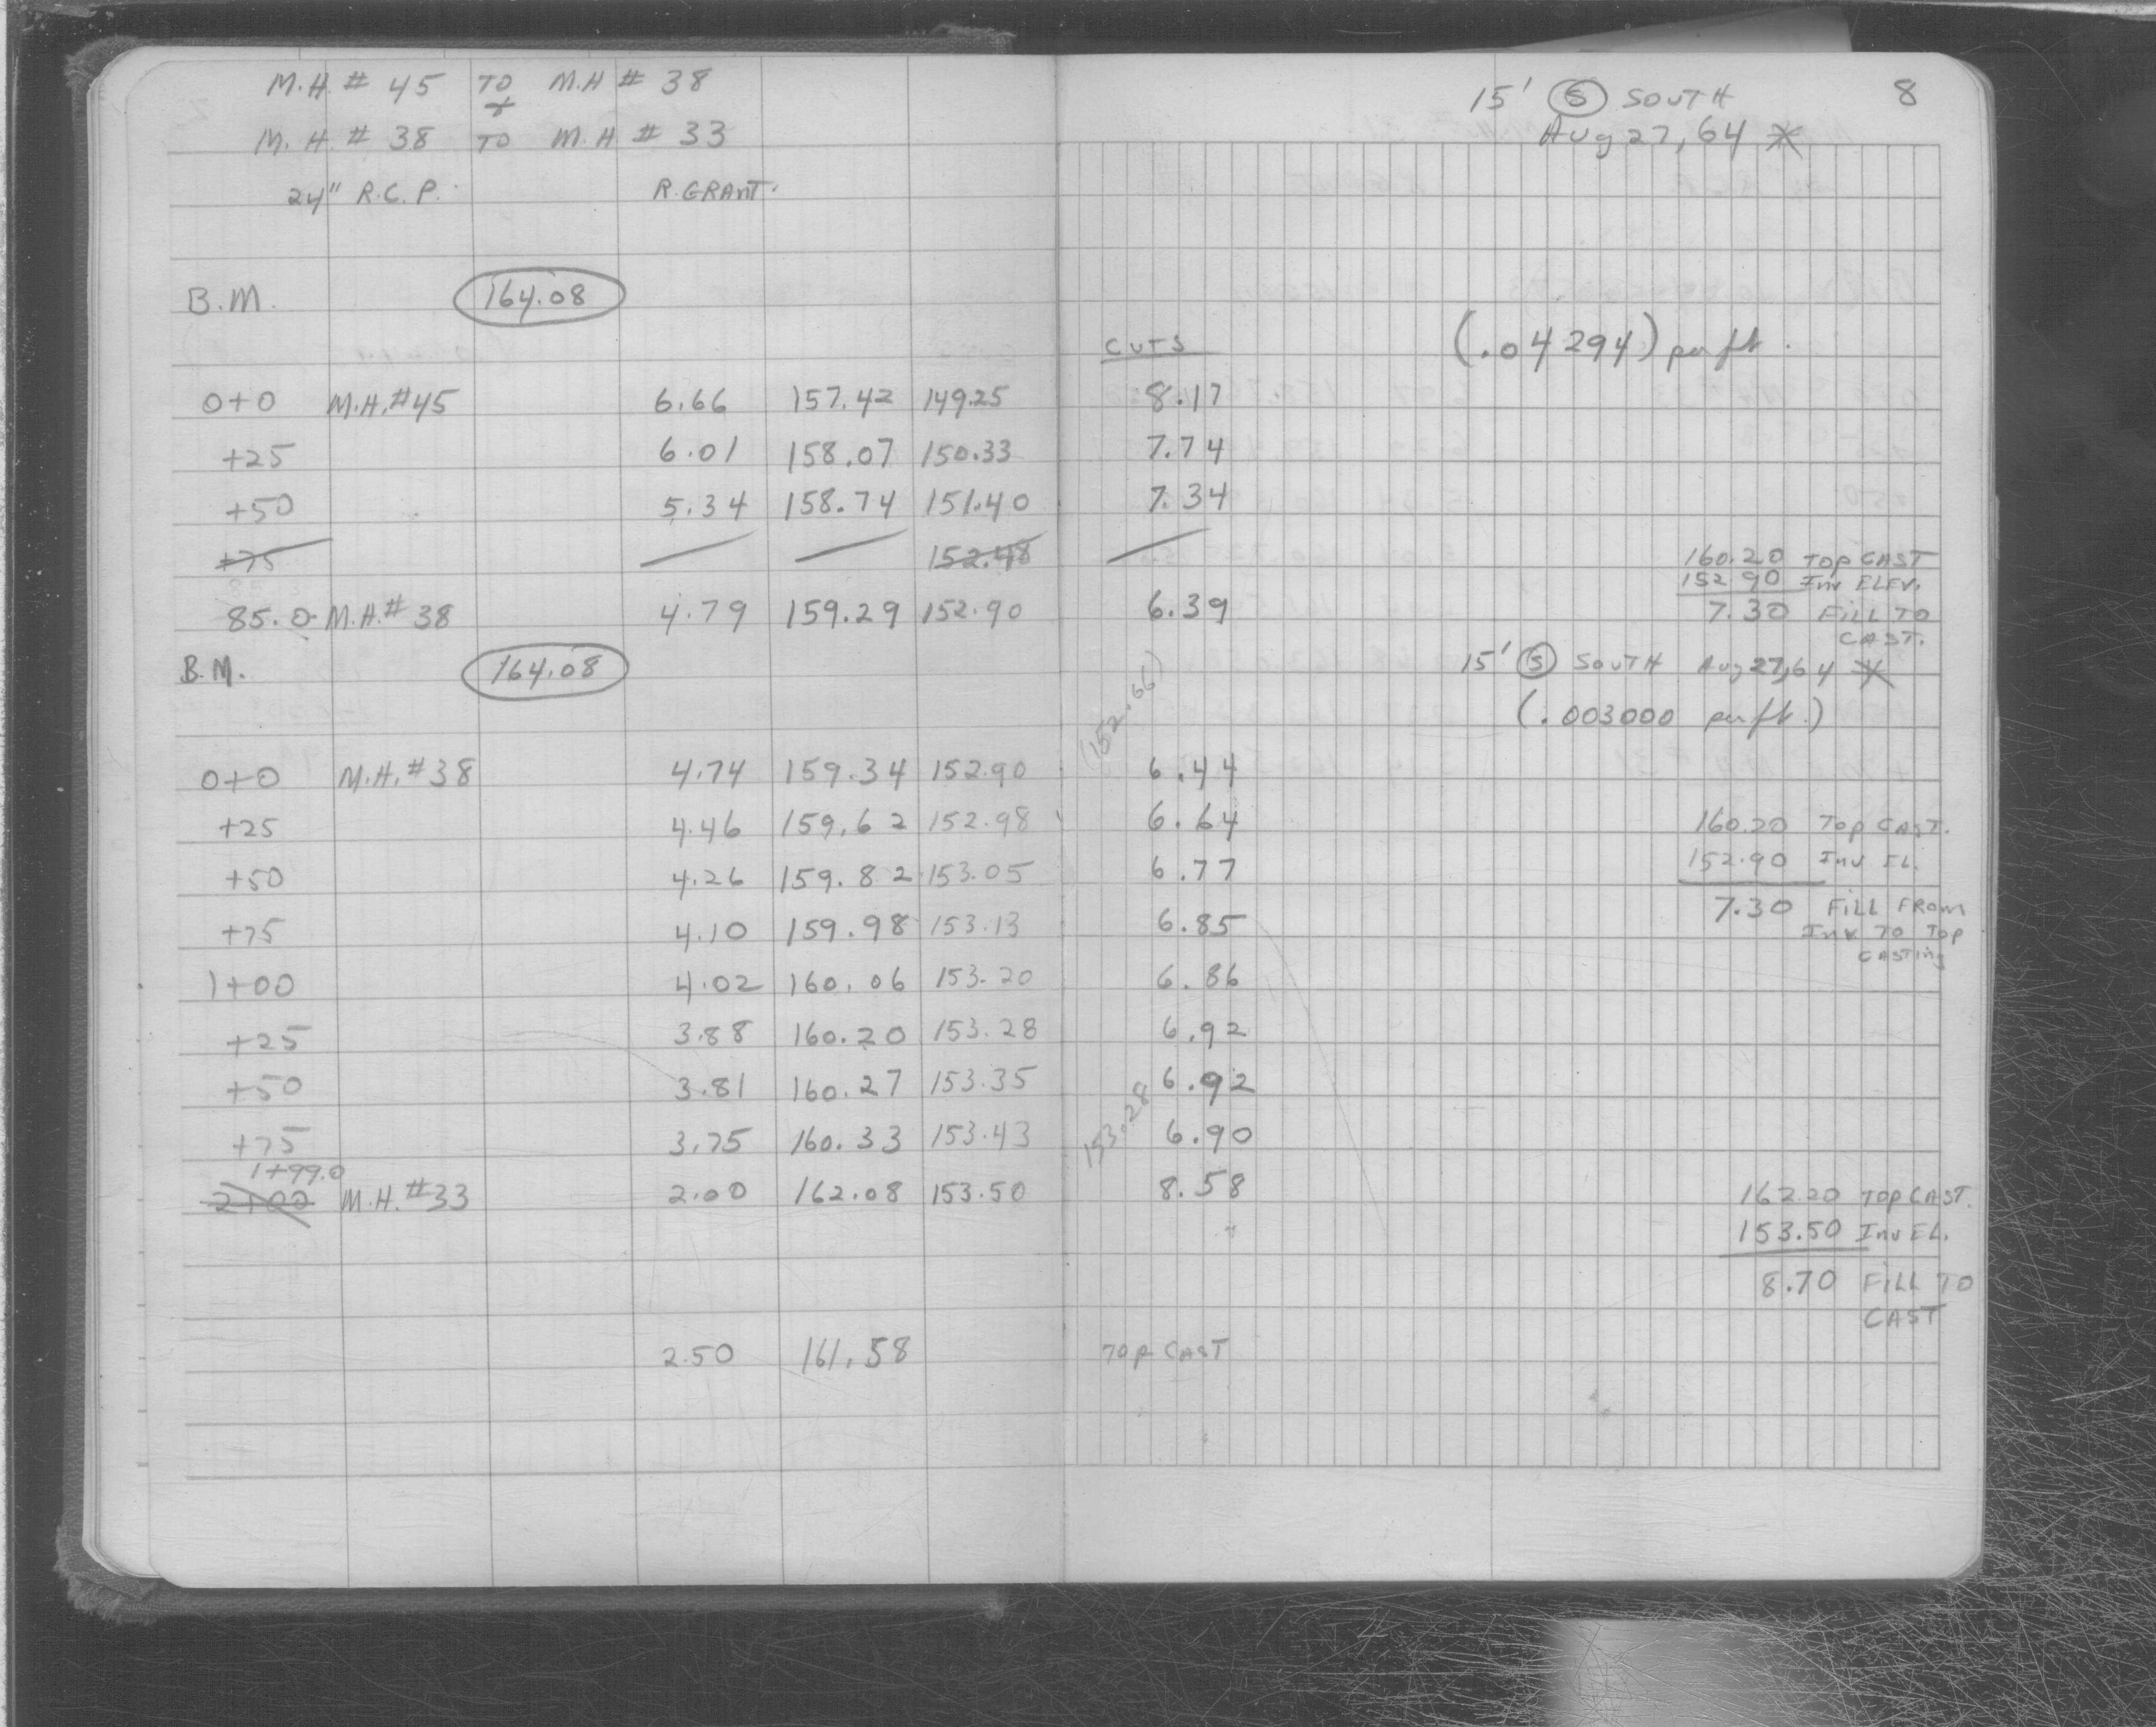 M.H. # 45 TO M.H # 38
+
M.H. # 38 TO M.H # 33
24" R.C.P. R.GRANT.
15' S SOUTH 8
Aug 27, 64
B.M. 164.08
CUTS (.04294) per ft.
0+0 M.H.#45 6.66 157.42 149.25 8.17
+25 6.01 158.07 150.33 7.74
+50 5.34 158.74 151.40 7.34
+75 152.48
160.20 TOP CAST
152 90 Inv ELEV.
85.0 M.H.#38 4.79 159.29 152.90 6.39 7.30 FILL TO
CAST.
B.M. 164.08 15' S SOUTH Aug 27, 64
(152.66) (.003000 per ft.)
0+0 M.H.#38 4.74 159.34 152.90 6.44
+25 4.46 159.62 152.98 6.64 160.20 TOP CAST.
+50 4.26 159.82 153.05 6.77 152.90 Inv EL.
+75 4.10 159.98 153.13 6.85 7.30 FILL FROM
Inv TO TOP
CASTING
1+00 4.02 160.06 153.20 6.86
+25 3.88 160.20 153.28 6.92
+50 3.81 160.27 153.35 6.92
+75 3.75 160.33 153.43 153.28 6.90
1+99.0
2+00 M.H.#33 2.00 162.08 153.50 8.58 162.20 TOP CAST.
153.50 Inv EL.
8.70 FILL TO
CAST
2.50 161.58 TOP CAST